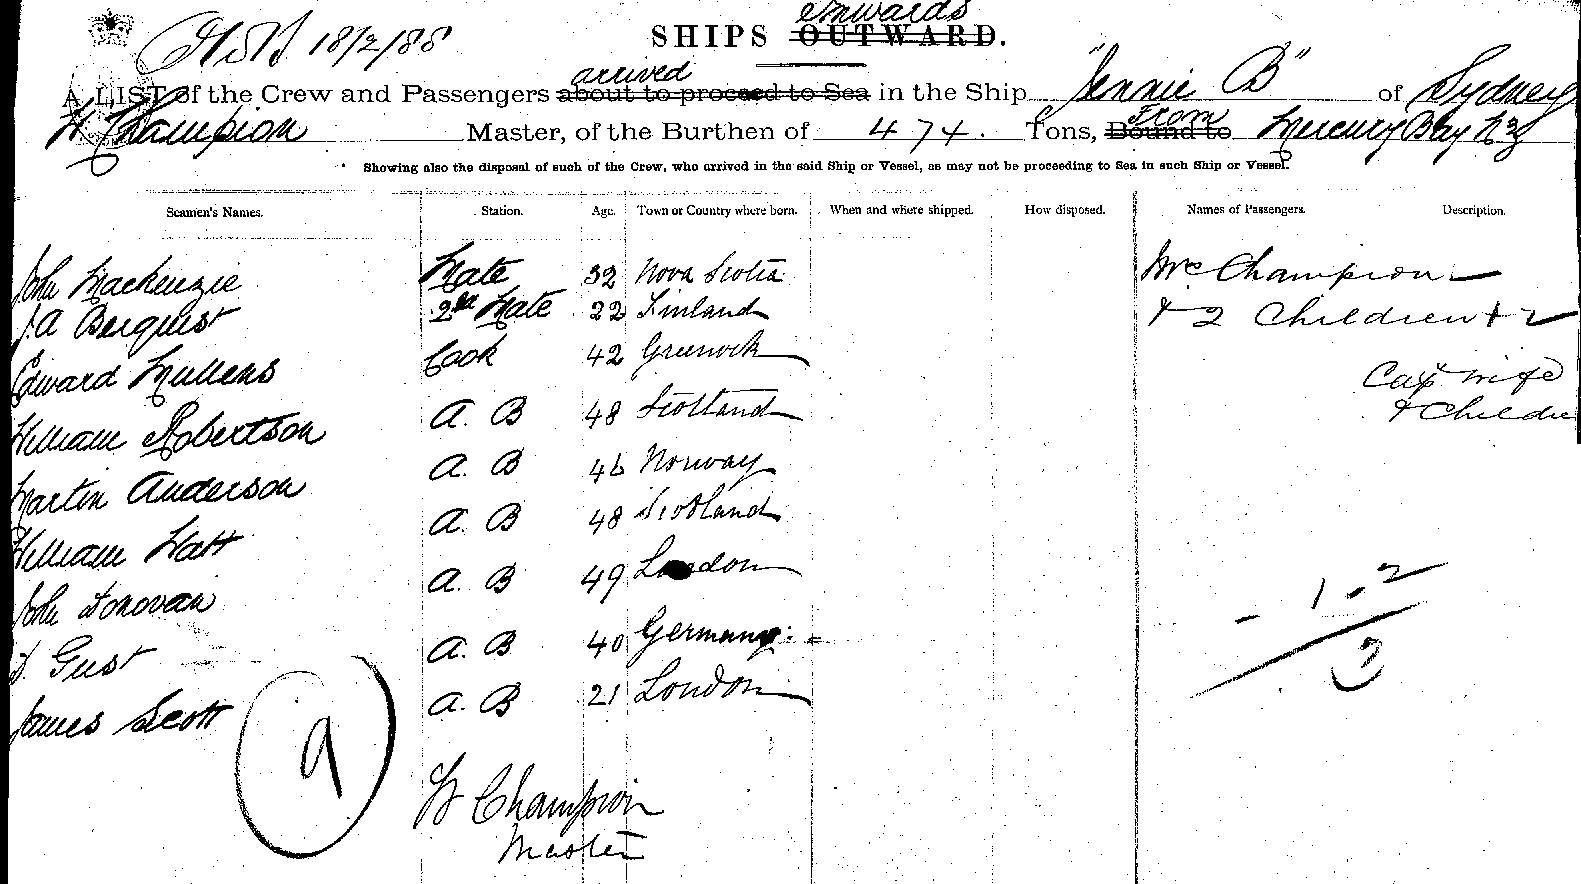 18/2/88
SHIPS OUTWARD. Inwards
A LIST of the Crew and Passengers about to proceed to Sea arrived in the Ship "Jennie B" of Sydney
W Champion Master, of the Burthen of 474. Tons, Bound to From Mercury Bay NZ
Showing also the disposal of such of the Crew, who arrived in the said Ship or Vessel, as may not be proceeding to Sea in such Ship or Vessel.
Seamen's Names. Station. Age. Town or Country where born. When and where shipped. How disposed. Names of Passengers. Description.
John Mackenzie Mate 32 Nova Scotia Mrs Champion
J. A Berquist 2nd Mate 22 Finland + 2 Children +
Edward Mullens Cook 42 Greenock
Cap wife
& Childre
William Robertson A. B 48 Scotland
Martin Anderson A. B 46 Norway
William Watt A. B 48 Scotland
John Donovan A. B 49 London
Gust A. B 40 Germany
James Scott A. B 21 London
- 1 . 2
3
9
W Champion
Master